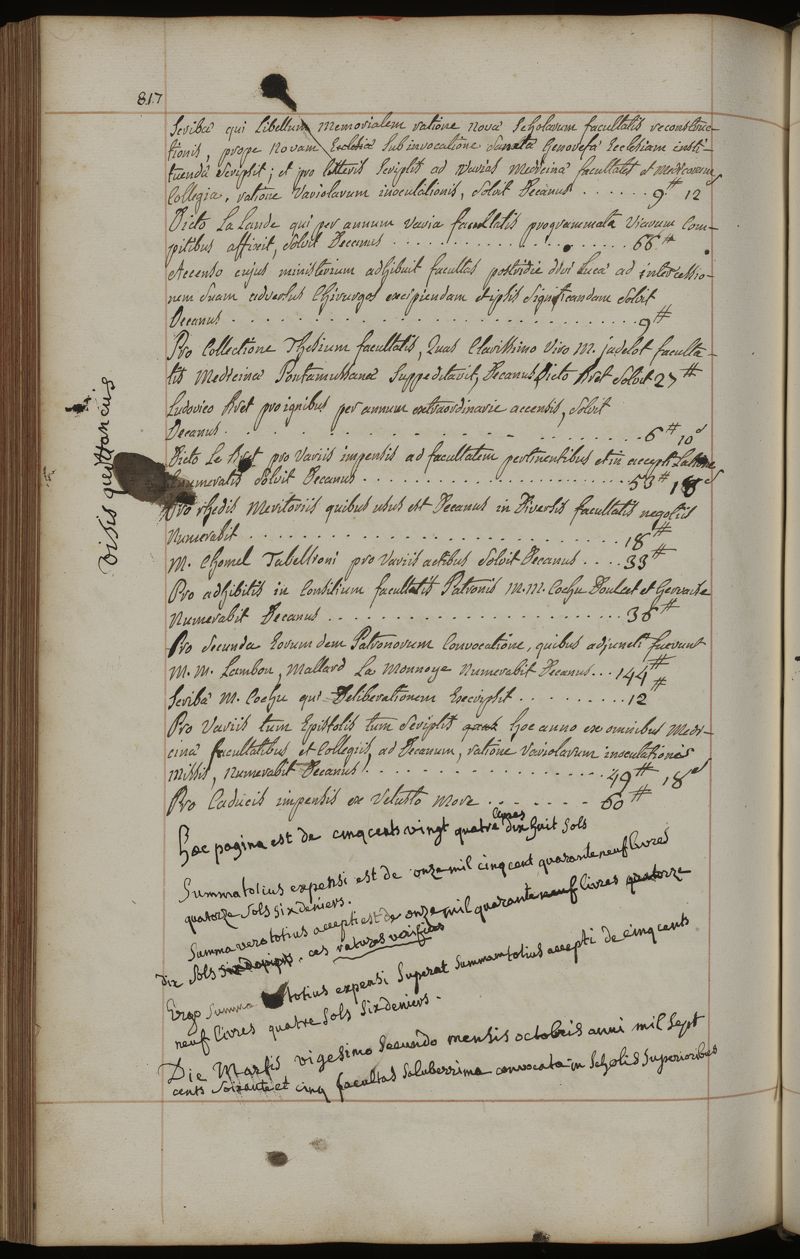 817
Scriba qui Libellum Memorialem ratione nova Scholarum facultatis reconstruc-
tionis, prope novam Ecclesia Sub invocatione Sancta Genovefa Ecclesiam insti-
tuenda Scripsit; et pro litteris Scriptis ad varias Medicina facultates et Medicorum
Collegia, ratione Variolarum inoculationis, Solvit Decanus ...... 9# 12s
Dicto La Lande qui per annum varia facultatis programmata viarum Com-
pitibus affixit, Solvit Decanus .................. 66#
Accenso cujus ministerium adhibuit facultas postridie divi Luca ad intercessio-
nem Suam adversus Chirurgos excipiendam et ipsis Significandam Solvit
Decanus ........................ 9#
Pro Collectione Thesium facultatis, quas Clarissimo Viro M. jadelot faculta-
tis Medicina Pontamussana Suppeditavit, Decanus Dicto Bret Solvit 27#
Ludovico Bret pro ignibus per annum extraordinarie accensis, Solvit
Decanus ........................ 6# 10s
Dicto Le Bret pro Variis impensis ad facultatem pertinentibus et in accepti
Enumeratis Solvit Decanus ................ 53# 18s
Pro rhedis Meritoriis quibus usus est Decanus in Diversis facultatis negotiis
Numerabit ........................ 18#
M. Chomel Tabellioni pro Variis actibus Solvit Decanus .... 33#
Pro adhibitis in Consilium facultatis Patronis M.M. Cochu Doulcet et Gervaise
Numerabit Decanus .................... 36#
Pro Secunda Eorumdem Patronorum Convocatione, quibus adjuncti fuerunt
M. M. Lambon, Mallard La Monnoye Numerabit Decanus ... 144#
Scriba M. Cochu qui Deliberationem Exscripsit ......... 12#
Pro Variis tum Epistolis tum Scriptis hoc anno ex omnibus Medi-
cina facultatibus et Collegiis, ad Decanum, ratione Variolarum inoculationis
Missis, numerabit Decanus .................. 49# 18s
Pro Caducis impensis ex Vetusto More ........ 60#
visis quittanciis
hæc pagina est de cinq cents vingt quatre livres dix huit Sols
Summa totius expensi est de onze mil cinq cent quarante neuf livres
quatorze Sols Six deniers.
Summa vero totius accepti est de onze mil quarante neuf livres quatorze
dix Sols Six deniers. ces ratures verifiées
Ergo Summa totius expensi Superat Summam totius accepti de cinq cents
neuf livres quatre Sols Six deniers.
Die Martis vigesimo Secundo mensis octobris anni mil Sept
cents Soixante et cinq facultas Saluberrima convocata in Scholis Superioribus